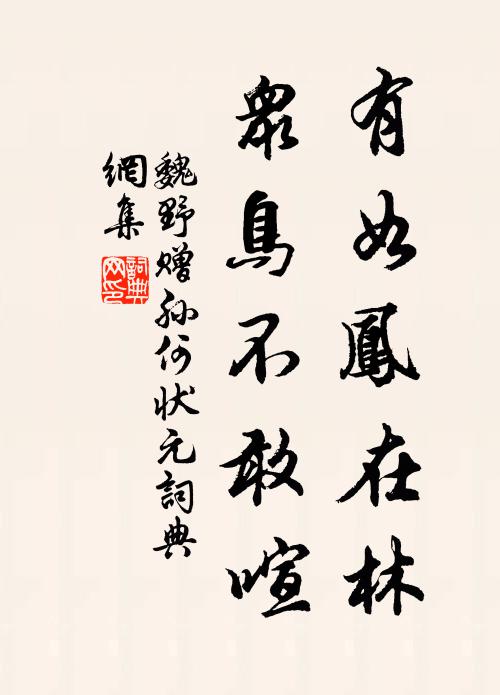 有如鳳在林
眾鳥不敢喧
魏野贈孫何狀元詞典
網集
詞典
网印